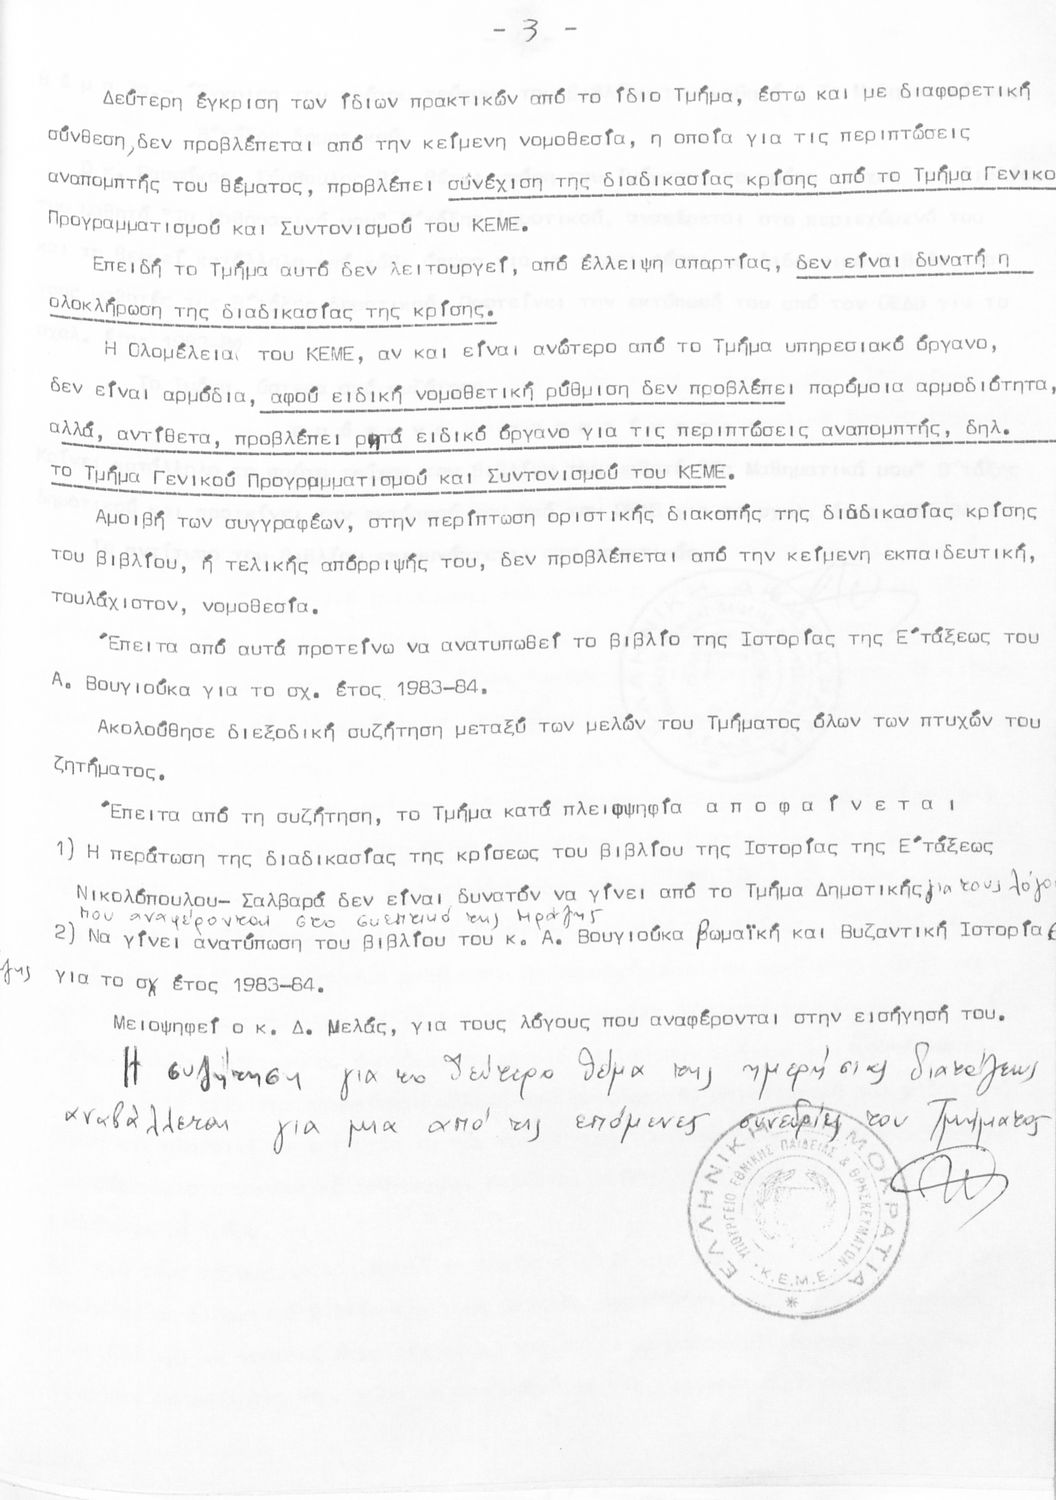 - 3 -
Δεύτερη έγκριση των ίδιων πρακτικών από το ίδιο Τμήμα, έστω και με διαφορετική
σύνθεση, δεν προβλέπεται από την κείμενη νομοθεσία, η οποία για τις περιπτώσεις
αναπομπής του θέματος, προβλέπει συνέχιση της διαδικασίας κρίσης από το Τμήμα Γενικο
Προγραμματισμού και Συντονισμού του ΚΕΜΕ.
Επειδή το Τμήμα αυτό δεν λειτουργεί, από έλλειψη απαρτίας, δεν είναι δυνατή η
ολοκλήρωση της διαδικασίας της κρίσης.
Η Ολομέλεια του ΚΕΜΕ, αν και είναι ανώτερο από το Τμήμα υπηρεσιακό όργανο,
δεν είναι αρμόδια, αφού ειδική νομοθετική ρύθμιση δεν προβλέπει παρόμοια αρμοδιότητα,
αλλά, αντίθετα, προβλέπει ρητά ειδικό όργανο για τις περιπτώσεις αναπομπής, δηλ.
το Τμήμα Γενικού Προγραμματισμού και Συντονισμού του ΚΕΜΕ.
Αμοιβή των συγγραφέων, στην περίπτωση οριστικής διακοπής της διαδικασίας κρίσης
του βιβλίου, ή τελικής απόρριψής του, δεν προβλέπεται από την κείμενη εκπαιδευτική,
τουλάχιστον, νομοθεσία.
Έπειτα από αυτά προτείνω να ανατυπωθεί το βιβλίο της Ιστορίας της Ε΄τάξεως του
Α. Βουγιούκα για το σχ. έτος 1983-84.
Ακολούθησε διεξοδική συζήτηση μεταξύ των μελών του Τμήματος όλων των πτυχών του
ζητήματος.
Έπειτα από τη συζήτηση, το Τμήμα κατά πλειοψηφία α π ο φ α ί ν ε τ α ι
1) Η περάτωση της διαδικασίας της κρίσεως του βιβλίου της Ιστορίας της Ε΄τάξεως
Νικολόπουλου- Σαλβαρά δεν είναι δυνατόν να γίνει από το Τμήμα Δημοτικής για τους λόγου
που αναφέρονται στο σκεπτικό της πράξης
2) Να γίνει ανατύπωση του βιβλίου του κ. Α. Βουγιούκα Ρωμαϊκή και Βυζαντική Ιστορία
για το σχ έτος 1983-84.
Μειοψηφεί ο κ. Δ. Μελάς, για τους λόγους που αναφέρονται στην εισήγησή του.
Η συζήτηση για το δεύτερο θέμα της ημερήσιας διατάξεως
αναβάλλεται για μια από τις επόμενες συνεδρίες του Τμήματος
ΕΛΛΗΝΙΚΗ ΔΗΜΟΚΡΑΤΙΑ
ΥΠΟΥΡΓΕΙΟ ΕΘΝΙΚΗΣ ΠΑΙΔΕΙΑΣ & ΘΡΗΣΚΕΥΜΑΤΩΝ
Κ.Ε.Μ.Ε.